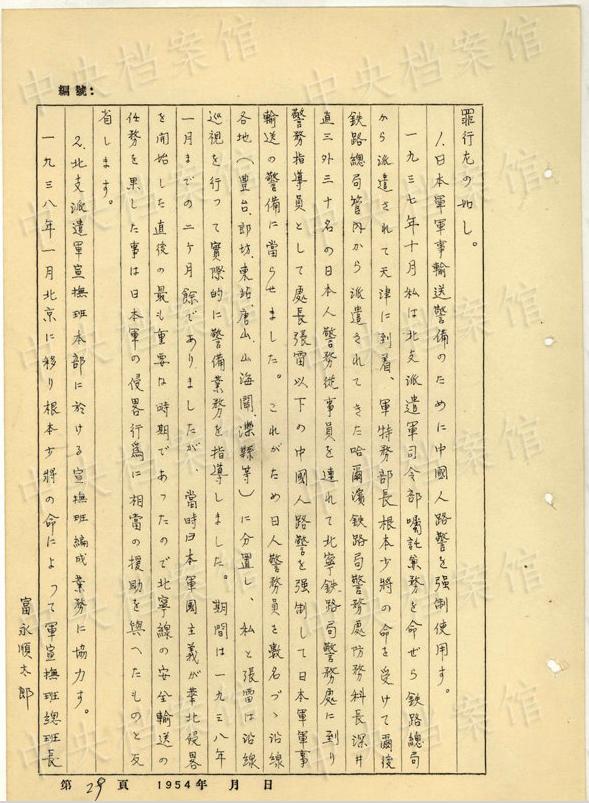 編號：
罪行左の如し。
1. 日本軍軍事輸送警備のために中國人路警を强制使用す。
一九三七年十月私は北支派遣軍司令部囑託兼務を命ぜら鉄路總局
から派遣されて天津に到着、軍特務部長根本少將の命を受けて爾後
鉄路總局管內から派遣されてきた哈爾濱鉄路局警務處防務科長深井
直三外三十名の日本人警務從事員を連れて北寧鉄路局警務處に到り
警務指導員として處長張雷以下の中國人路警を强制して日本軍軍事
輸送の警備に當らせました。これがため日人警務員を數名づゝ沿線
各地（豊台、郎坊、東站、唐山、山海関、灤縣等）に分置し、私と張雷は沿線
巡視を行って實際的に警備業務を指導しました。期間は一九三八年
一月までの二ヶ月餘でありましたが、當時日本軍國主義が華北侵畧
を開始した直後の最も重要な時期であったので北寧線の安全輸送の
任務を果した事は日本軍の侵畧行爲に相當の援助を與へたものと反
省します。
2. 北支派遣軍宣撫班本部に於ける宣撫班編成業務に協力す。
一九三八年一月北京に移り根本少將の命によって軍宣撫班總班長
富永順太郎
第 29 頁 1954年 月 日
中央档案馆